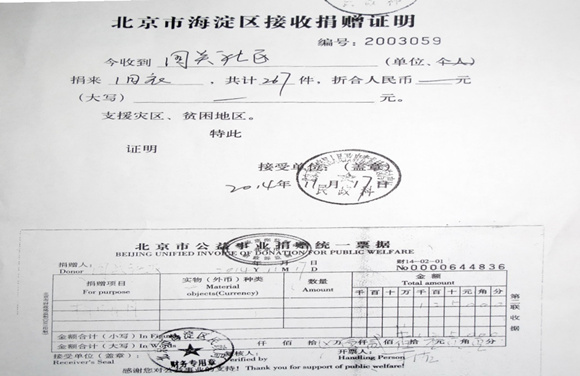 北京市海淀区接收捐赠证明
编号：2003059
今收到 (单位、个人)
捐来 旧衣，共计267件，折合人民币 — 元
(大写) — 元。
支援灾区、贫困地区。
特此
证明
接受单位：(盖章)
民政科
2014年11月17日
北京市公益事业捐赠统一票据
BEIJING UNIFIED INVOICE OF DONATION FOR PUBLIC WELFARE
捐赠人： 年 月 日 财14-02-01
Donor Y M D No 0000644836
捐赠项目 实物（外币）种类 数量 金额
For purpose Material objects(Currency) Amount Total amount
千 百 十 万 千 百 十 元 角 分
第 联 收据
金额合计（小写）In Figures
金额合计（大写）In Words 仟 佰 拾 万 仟 佰 拾 元 角 分
接受单位（盖章）： 复核人： 开票人：
Receiver's Seal Verified by Handling Person
财务专用章
感谢您对公益事业的支持！Thank you for support of public welfare!